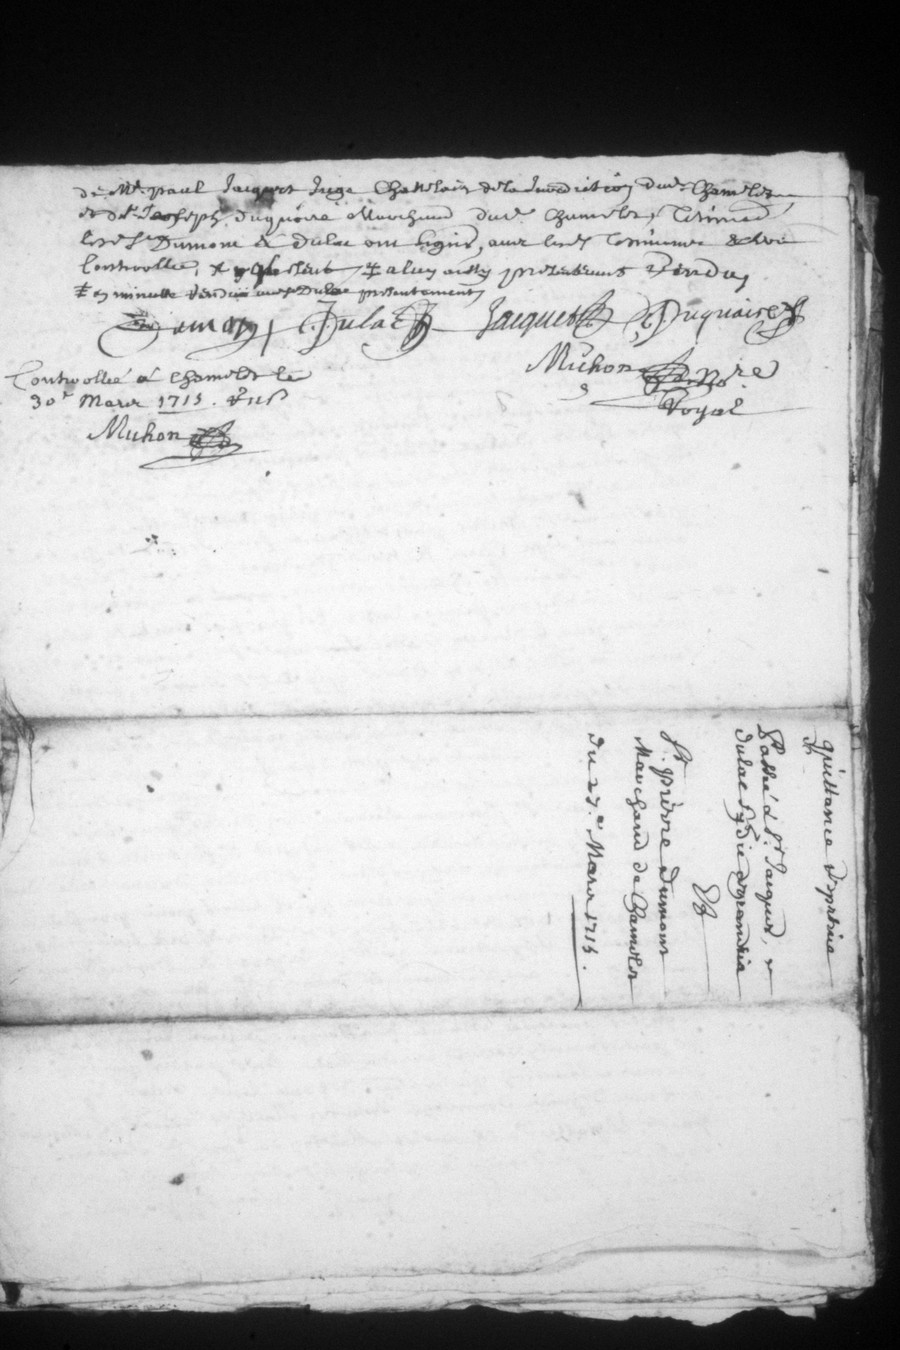 de Me. paul Jacquet Juge Chattelain de la Jurediction dud. Chamelet
et de Sr. Joseph Duguaire Marchand dud. Chamelet, tesmoins
lesd. Srs Dumont & Dulac ont signé, avec lesd. tesmoins & sera
Controollée, présentement rendu
en minutte rendue aud. Sr Dulac présentement
Dumont Dulac Jacquet Duguaire
Michon nre
Royal
Controollé à chamelet le
30e Mars 1715.
Michon
quittance
Passé à Sr. Jacques,
dulac
Et
Sr. pierre dumont
Marchand de Chamelet
Du 27.e Mars 1715.